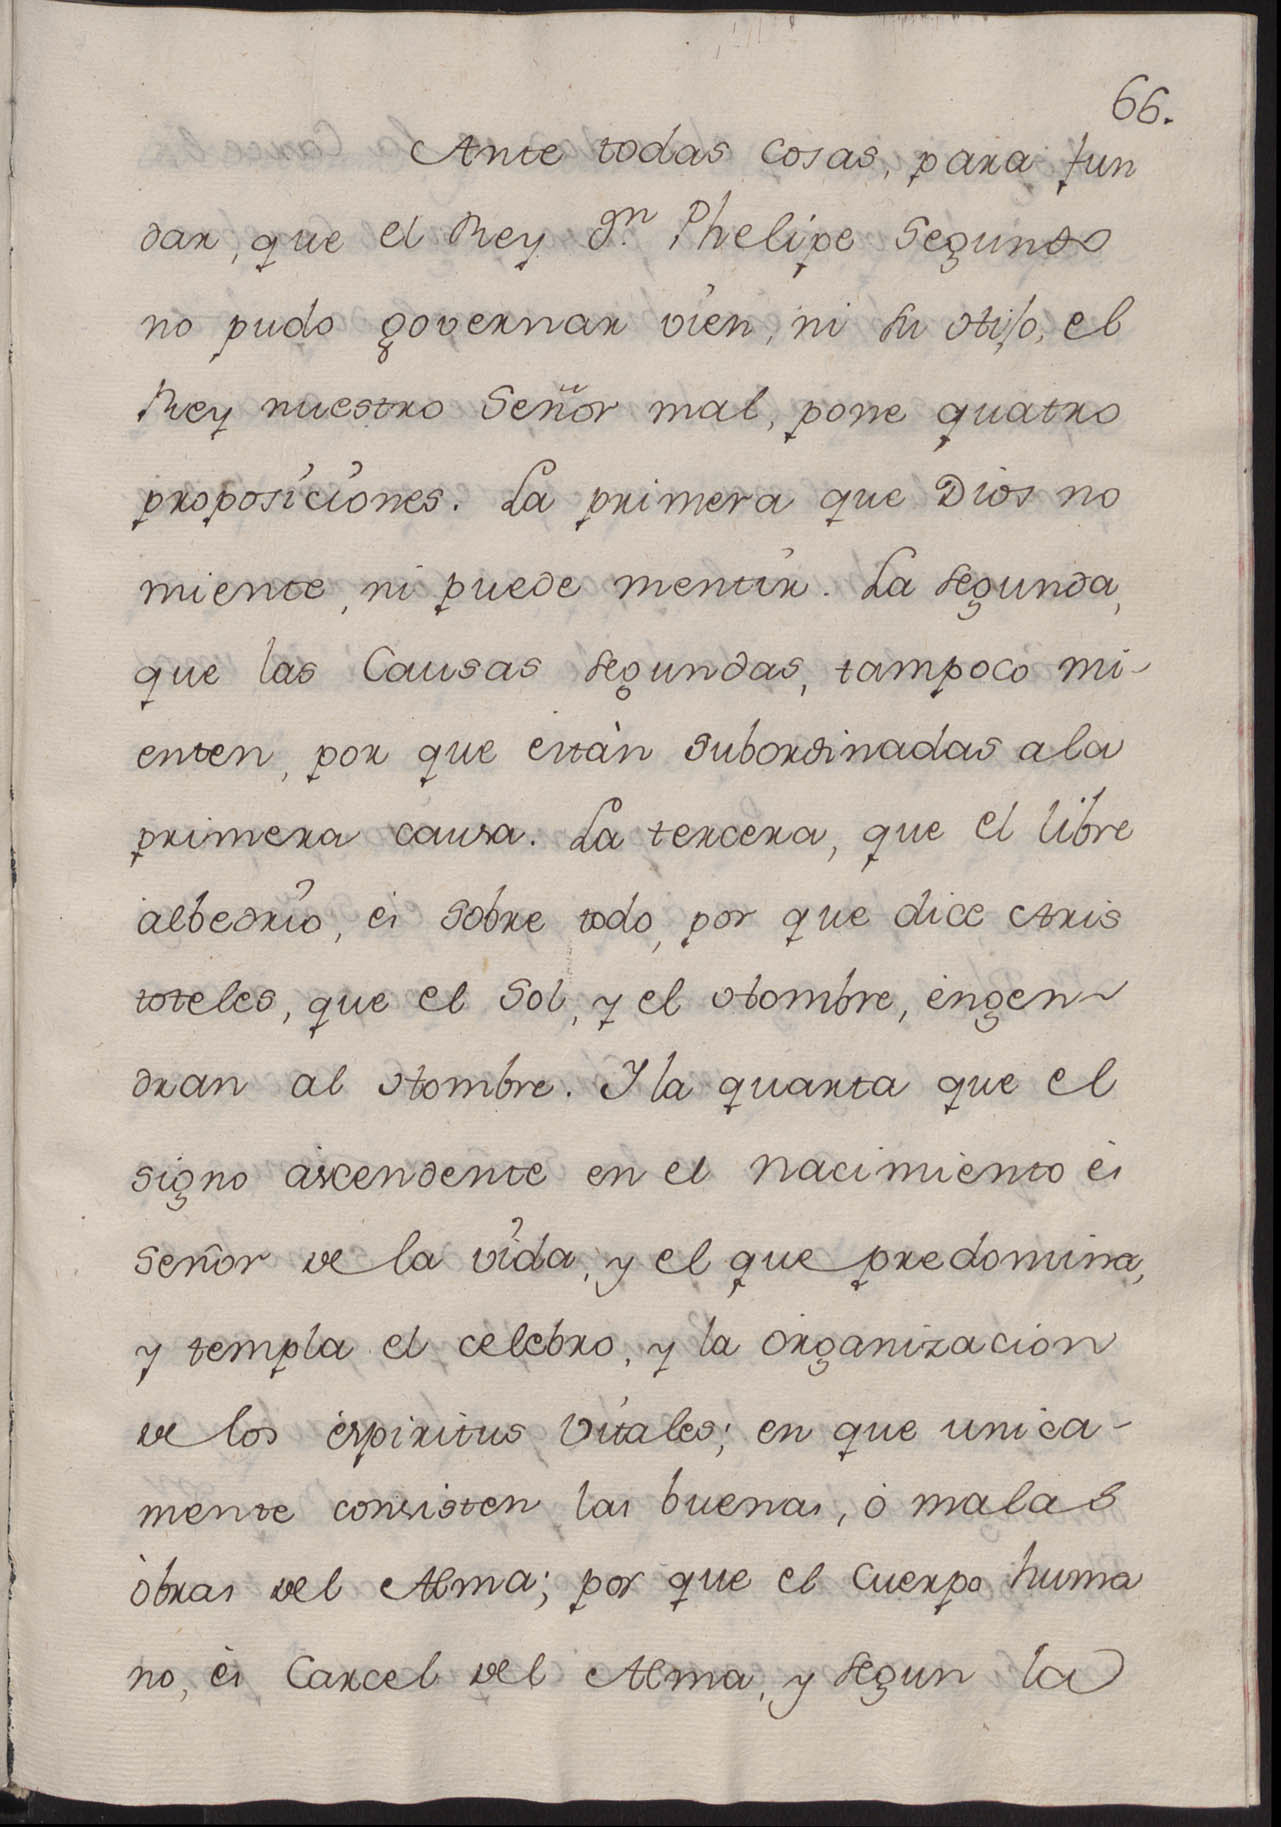 66.
Ante todas cosas, para fun
dar, que el Rey Dn. Phelipe Segundo
no pudo governar vien, ni su Hijo, el
Rey nuestro Señor mal, pone quatro
proposiciones. La primera que Dios no
miente, ni puede mentir. La segunda,
que las Causas segundas, tampoco mi-
enten, por que están subordinadas a la
primera causa. La tercera, que el libre
albedrio, es sobre todo, por que dice Aris
toteles, que el Sol, y el Hombre, engen-
dran al Hombre. Y la quarta que el
signo ascendente en el nacimiento es
Señor de la vida, y el que predomina,
y templa el celebro, y la organizacion
de los espiritus vitales; en que unica-
mente consisten las buenas, ò malas
òbras del Alma; por que el cuerpo huma
no, es Carcel del Alma, y segun la